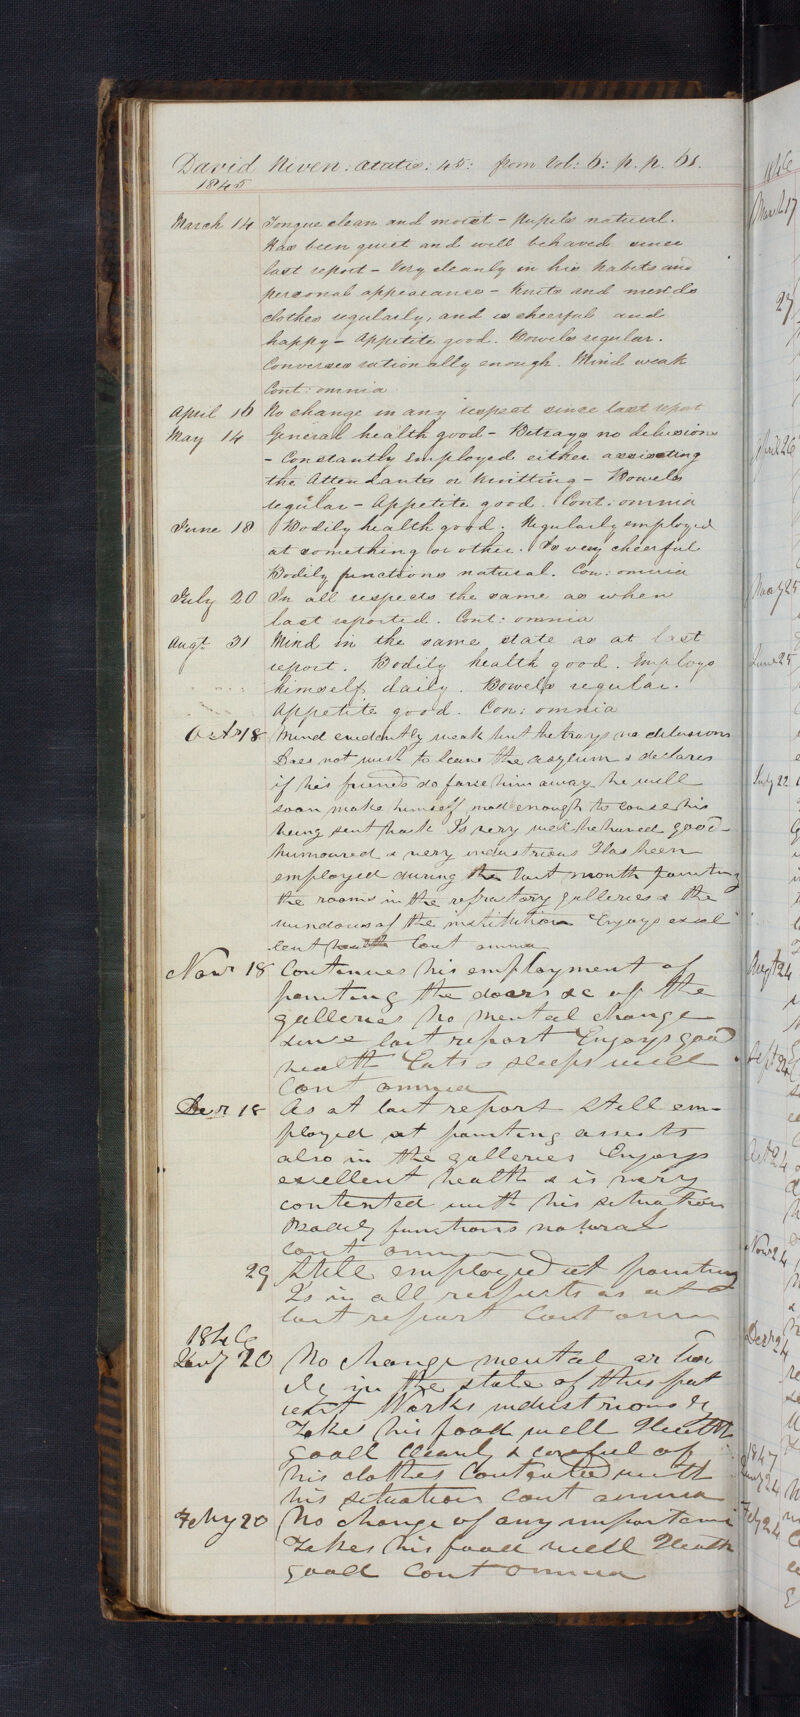 David Niven: Ætatis: 45: from Vol: 6: p. p. 61.
1845
March 14 Tongue clean and moist - Pupils natural.
Has been quiet and well behaved since
last report - Very cleanly in his habits and
personal appearance - Knits and mends
clothes regularly, and is cheerful and
happy - Appetite good. Bowels regular.
Converses rationally enough. Mind weak
Cont: omnia
April 16 No change in any respect since last report
May 14 General health good - Betrays no delusions
- Constantly employed either assisting
the Attendants or knitting - Bowels
regular - Appetite good. Cont: omnia
June 18 Bodily health good. Regularly employed
at something or other. Is very cheerful
Bodily functions natural. Con: omnia
July 20 In all respects the same as when
last reported. Cont: omnia
Augt. 31 Mind in the same state as at last
report. Bodily health good. Employs
himself daily. Bowels regular.
Appetite good. Con: omnia
Octr 18 Mind evidently weak but betrays no delusions
Does not wish to leave the asylum & declares
if his friends do force him away he will
soon make himself mad enough to cause his
being sent back Is very well behaved good-
humoured & very industrious Has been
employed during the last month painting
the rooms in the refractory galleries & the
windows of the institution Enjoys excel
lent health Cont omnia
Novr 18 Continues his employment of
painting the doors &c of the
galleries No mental change
since last report Enjoys good
health Eats & sleeps well
Cont omnia
Decr 18 As at last report Still em-
ployed at painting assists
also in the galleries Enjoys
excellent health & is very
contented with his situation
Bodily functions natural
Cont omnia
29 Still employed at painting
Is in all respects as at
last report Cont omn
1846
Jany 20 No change mental or bod
ily in the state of this pat
ient Works industriously
Takes his food well Health
good Cleanly & careful of
his clothes Contented with
his situation Cont omnia
Feby 20 No change of any importance
Takes his food well Health
good Cont omnia
1846
March 17
27
April 26
May 25
June 25
July 22
Augt 24
Sept 24
Oct 24
Novr 24
Decr 24
1847
Jany 24
Feby 24